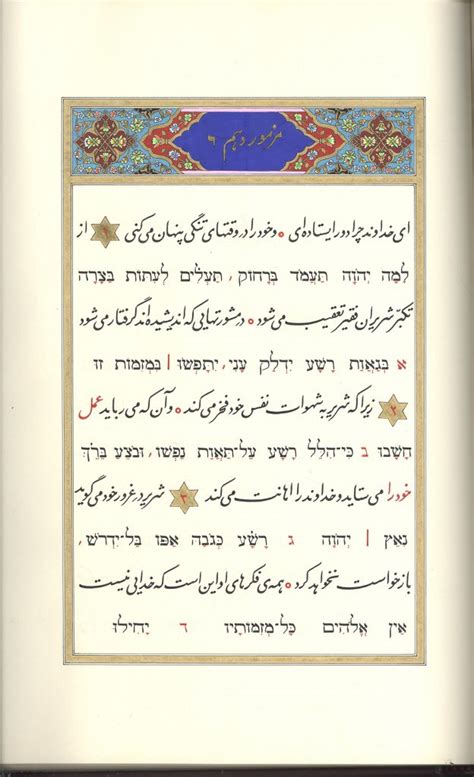 مزمور دهم ٦
ای خداوند چرا دور ایستاده‌ای و خود را در وقتهای تنگی پنهان می‌کنی ۱ از
לָמָה יְהֹוָה תַּעֲמֹד בְּרָחוֹק, תַּעְלִים לְעִתּוֹת בַּצָּרָה
تکبّر شریران فقیر تعقیب می‌شود در مشورتهایی که اندیشیده‌اند گرفتار می‌شود
א בְּגַאֲוַת רָשָׁע יִדְלַק עָנִי, יִתָּפְשׂוּ | בִּמְזִמּוֹת זוּ
۲ زیرا که شریر به شهوات نفس خود فخر می‌کند و آن که می‌رباید عمل
חָשָׁבוּ ב כִּי־הִלֵּל רָשָׁע עַל־תַּאֲוַת נַפְשׁוֹ, וּבֹצֵעַ בֵּרֵךְ
خود را می‌ستاید و خداوند را اهانت می‌کند ۳ شریر در غرور خود می‌گوید
נִאֵץ | יְהֹוָה ג רָשָׁע כְּגֹבַהּ אַפּוֹ בַּל־יִדְרֹשׁ,
بازخواست نخواهد کرد همه‌ی فکرهای او این است که خدایی نیست
אֵין אֱלֹהִים כׇּל־מְזִמּוֹתָיו ד יָחִילוּ